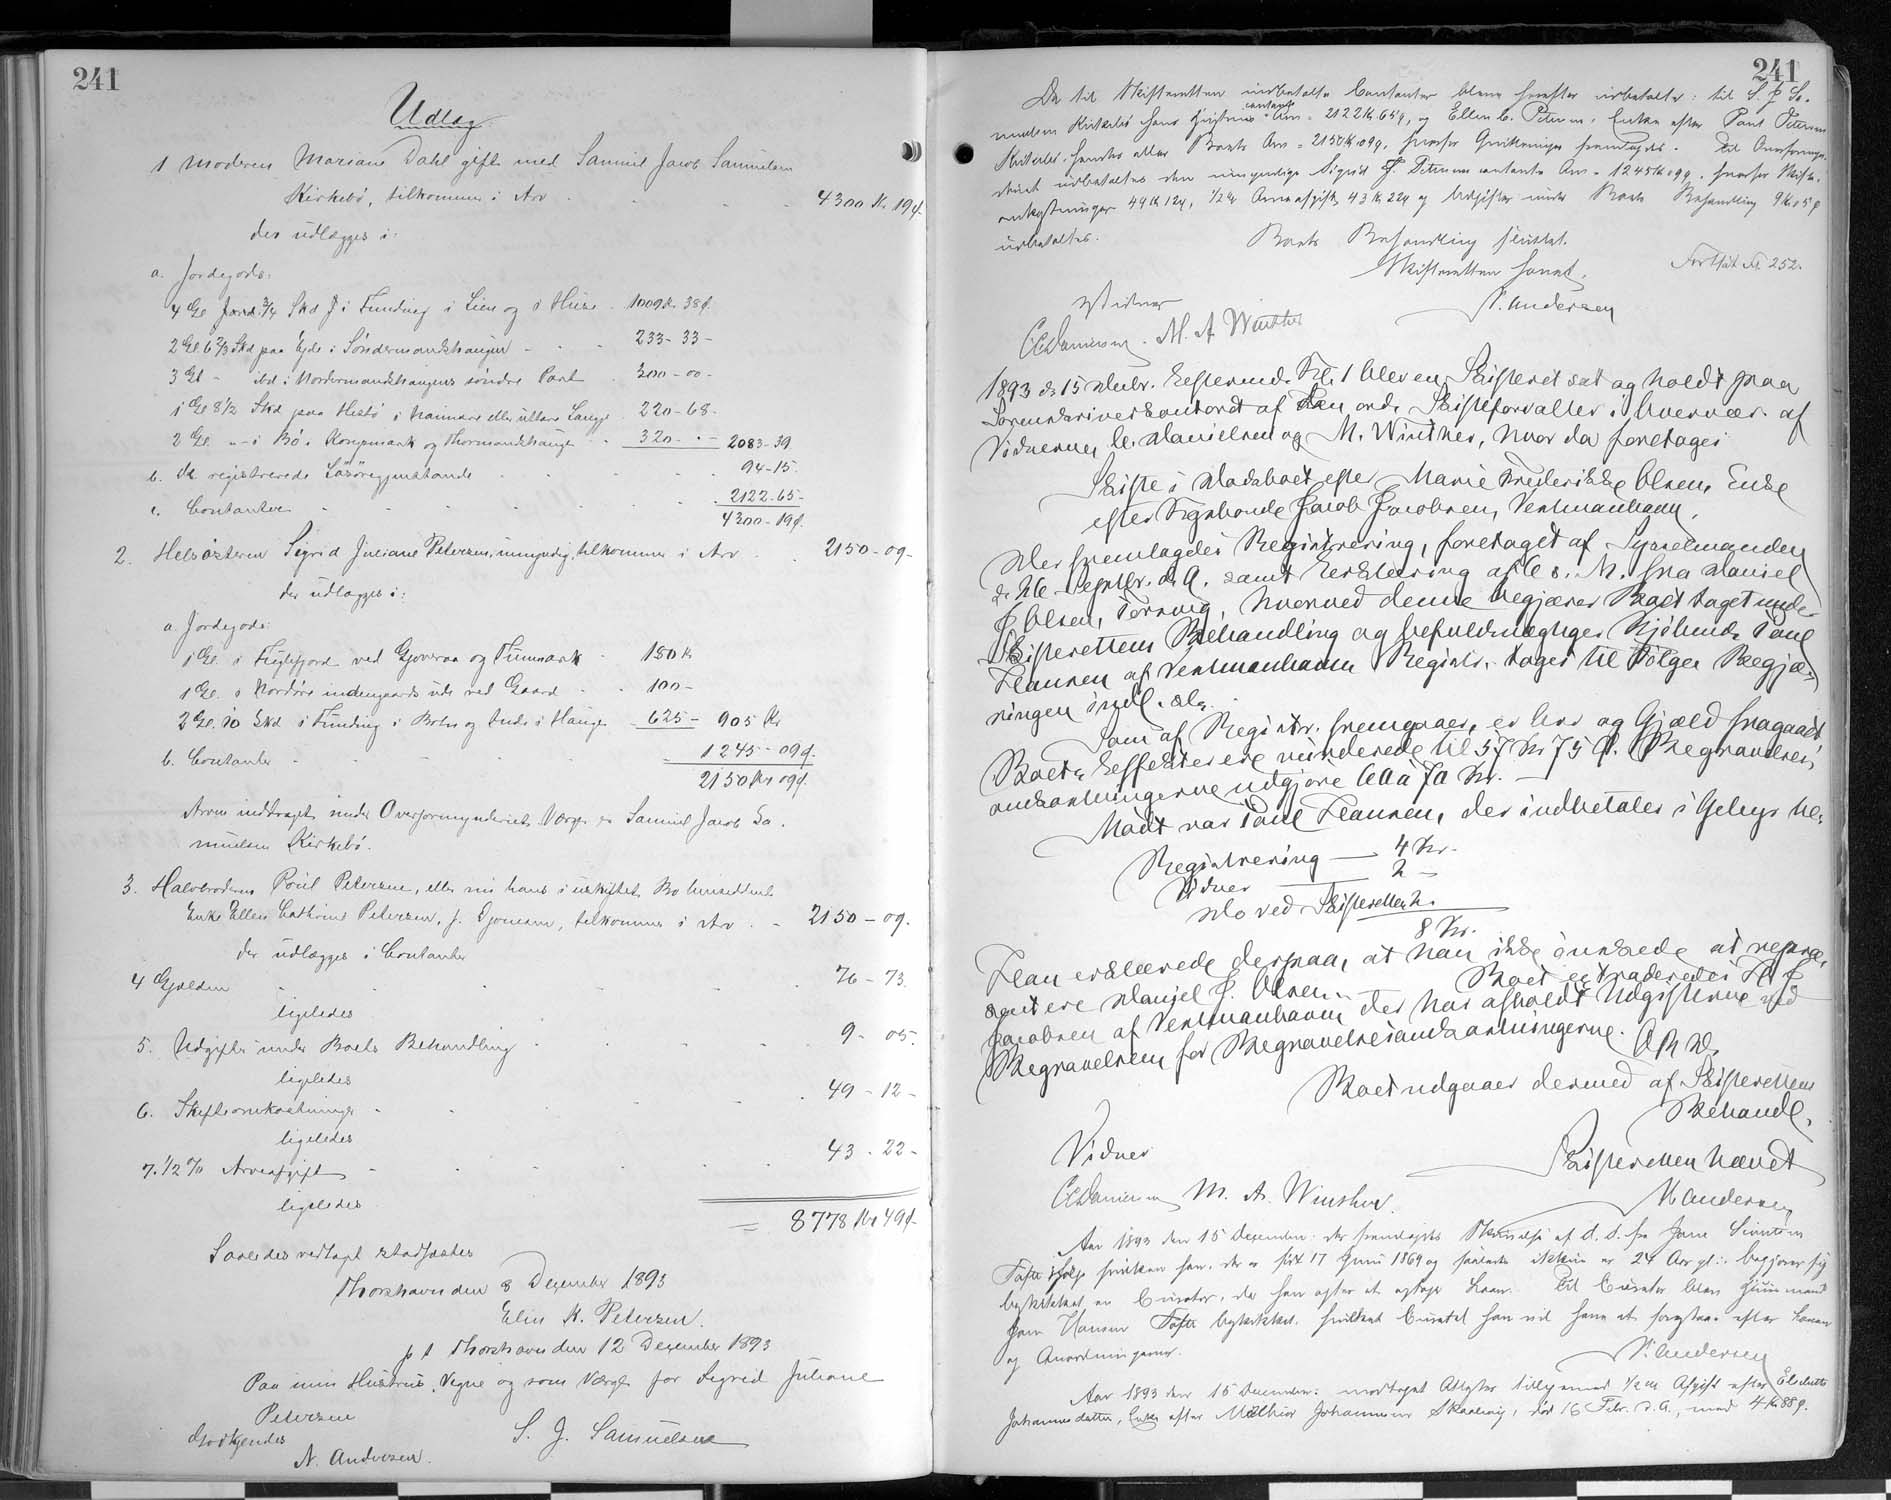 241
Udlæg
1 Moderen Mariane Dahl gift med Samuel Jacob Samuelsen
Kirkebö, tilkommer i Arv 4300 Kr 19 ø.
der udlægges i:
a. Jordegods:
4 Gl. Jord 3/4 Skd i Funding i Lien og i Huse 1009 Kr. 38 ø.
2 Gl. 6 2/3 Skd paa Ejde i Söndermandshaugen 233 - 33 -
3 Gl - ibd i Nordermandshaugens söndre Part 300 - 00 -
1 Gl 8 1/2 Skd paa Hestö i eller 220 - 68 -
2 Gl. - i Bö i Kongsmark og Thormandshauge 320 - - 2083 - 39
b. De registrerede Lösöregjenstande 94 - 15
c. Contanter 2122 - 65 -
4300 - 19 ø.
2. Helsösteren Sigrid Juliane Petersen, umyndig, tilkommer i Arv 2150 - 09 -
der udlægges i:
a. Jordegods:
1 Gl. i Fuglefjord ved Gjoveraa og 180 Kr
1 Gl. i Nordöre indengaards ude ved Gaard 100 -
2 Gl. 10 Skd i Funding i og i Hauge 625 - 905 Kr
b. Contanter 1245 - 09 ø.
2150 Kr 09 ø.
Arven inddrages under Overformynderiet. Værge er Samuel Jacob Sa-
muelsen Kirkebö.
3. Halvbroderen Poul Petersen, eller nu hans i uskiftet Bo hensiddende
Enke Ellen Cathrine Petersen, f. Djonesen, tilkommer i Arv 2150 - 09.
der udlægges i Contanter
4 Gjælden 76 - 73.
ligeledes
5. Udgifter under Boets Behandling 9 - 05.
ligeledes
6. Skifteomkostninger 49 - 12 -
ligeledes
7. 1/2 % Arveafgift 43 - 22 -
ligeledes
= 8778 Kr 49 ø.
Saaledes vedtaget stadfæstes
Thorshavn den 8 Dezember 1893
Elin K. Petersen.
p t Thorshavn den 12 Dezember 1893
Paa min Hustrus Vegne og som Værge for Sigrid Juliane
Petersen
S. J. Samuelsen
Godkjendes
N. Andersen.
241
De til Skifteretten indbetalte Contanter bleve herefter udbetalte: til S. J. Sa-
muelsen Kirkebö hans Hustrus contante Arv = 2122 Kr 65 ø, og Ellen C. Petersen, Enke efter Poul Petersen
Kirkebö, hendes eller Boets Arv = 2150 Kr 09 ø, hvorfor Qvitteringer fremlagdes. Til Overformyn-
deriet udbetaltes den umyndige Sigrid J. Petersens contante Arv = 1245 Kr 09 ø, hvorfor Skifte-
omkostninger 49 Kr 12 ø, 1/2 % Arveafgift 43 Kr 22 ø og Udgifter under Boets Behandling 9 Kr 05 ø
udbetaltes.
Boets Behandling sluttet.
Skifteretten hævet.
Fortsat Fl. 252.
N. Andersen
Vidner
C. Danielsen. M. A. Winther
1893 d. 15 Decbr. Eftermd. Kl. 1 blev en Skifteret sat og holdt paa
Sorenskriverkontoret af den ord. Skifteforvalter i Overvær af
Vidnerne, C. Danielsen og M. Winther, hvor da foretoges
Skifte i Dödsboet efter Marie Frederikke Olsen, Enke
efter Jacob Jacobsen, Vestmanhavn.
Der fremlagdes Registrering, foretaget af Sysselmanden
d. 26 Septbr. d. A. samt Erklæring af 6 s. M. fra Daniel
J. Olsen, Torsvig, hvorved denne begjærer Boet taget under
Skifterettens Behandling og befuldmægtiger Kjöbmd. Poul
Hansen af Vestmanhavn Registr. tages til Fölge. Begjæ-
ringen indl.
Som af Registr. fremgaaer, er Arv og Gjæld fragaaet.
Boets Effekter ere vurderede til 57 Kr 75 ø. Begravelses-
omkostningerne udgjöre 60 a 70 Kr. —
Mödt var Poul Hansen, der indbetaler i Gebyr
Registrering — 4 Kr.
Vidner — 2 —
Do ved Skifteretten 2.
8 Kr.
Han erklærede derpaa, at han ikke önskede at repræ-
sentere Daniel J. Olsen. Boet extraderedes
Jacobsen af Vestmanhavn der har afholdt Udgifterne ved
Begravelsen for Begravelsesomkostningerne.
Boet udgaaer dermed af Skifterettens
Behandl.
Skifteretten hævet
Vidner
C. Danielsen M. A. Winther.
N. Andersen
Aar 1893 den 15 Dezember: der fremlagdes Skrivelse af d. d. fra Jens
Tofte hvilken han, der er född 17 Juni 1869 og saaledes ikkun er 24 Aar gl., begjærer sig
beskikket en Curator, da han agter at optage Laan. Til Curator blev Huusmand
Hansen Tofte beskikket, hvilket Curatel han vil have at forestaae efter Loven
og Anordningerne.
N. Andersen
Aar 1893 den 15 December: modtaget Attester tilligemed 1/2 % Afgift efter Elsebeth
Johannesdatter, Enke efter Johannesen Skaalevig, död 16 Febr. d. A., med 4 Kr 88 ø.